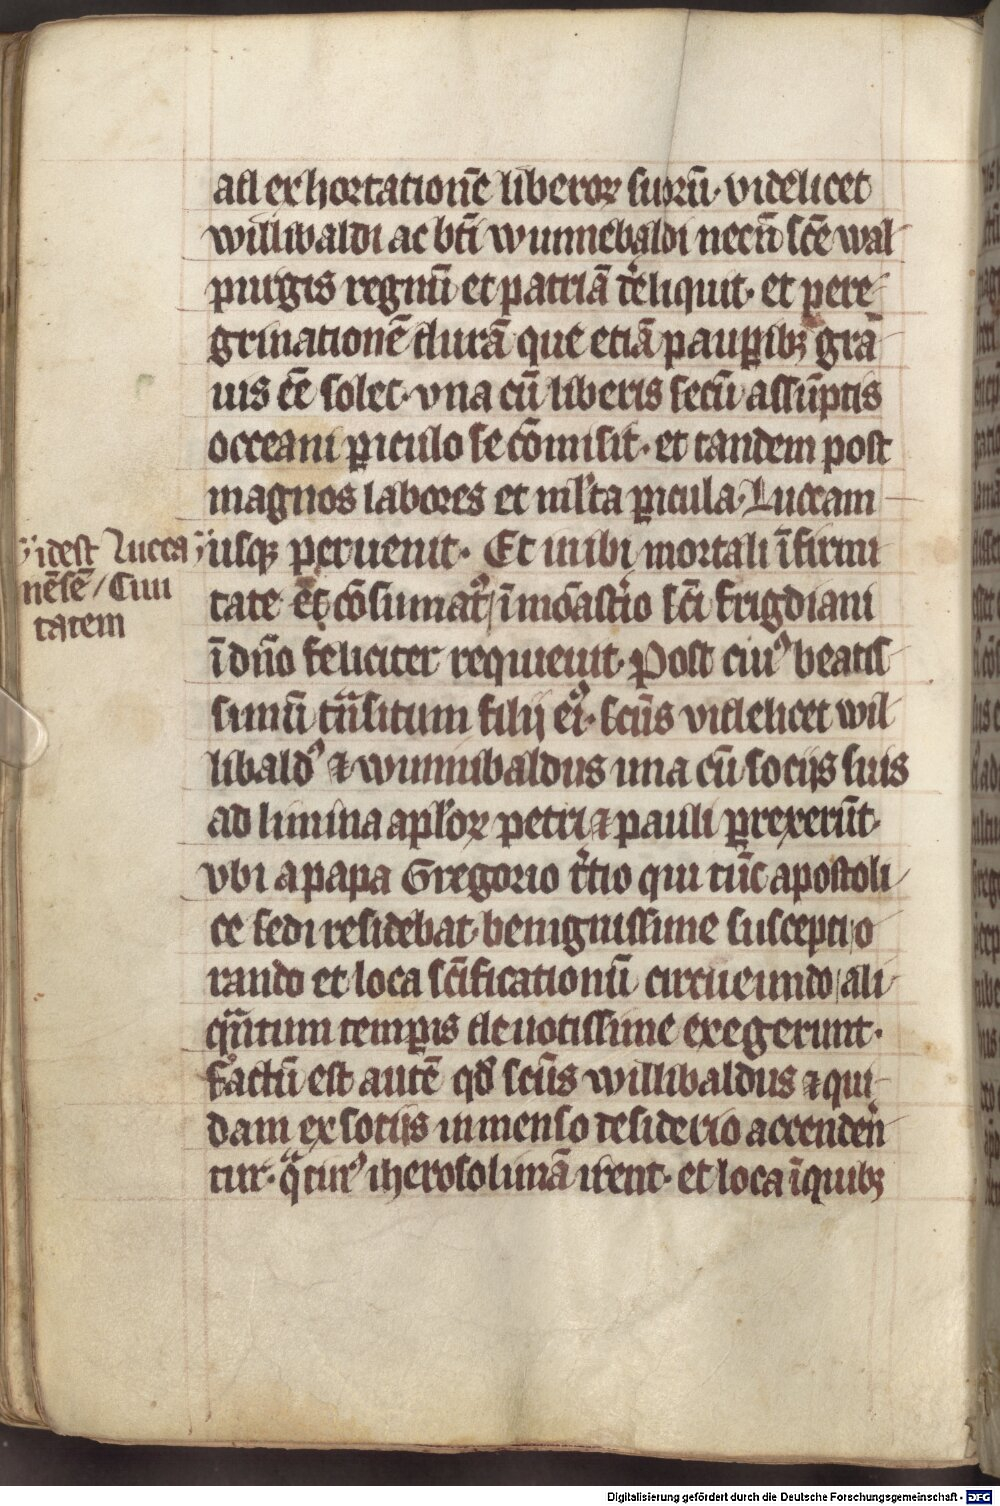 ad exhortationē liberoꝝ suorū· videlicet
willibaldi ac bt̄i wunnebaldi necn̄ sc̄e wal
purgis regnū et patriā dͤreliquit· et pere
grinationē durā que etiā pauꝑibꝫ gra
uis eē̄ solet· vna cū liberis secū assūptis
occeani ꝑiculo se cōmisit· et tandem post
magnos labores et ml̄ta ꝑicula· Luccam
usqꝫ peruenit· Et inibi mortali īfirmi
idest Lucca
nēsē / Ciui
tatem
tate cōsumatꝰ ī mōast̄io sc̄i frigdiani
ī dn̄o feliciter requieuit· Post eiuꝰ beatis
simū tn̄situm filij eiꝰ· sc̄us videlicet wil
libaldꝰ ⁊ wunnibaldus una cū socijs suis
ad limina apl̄oꝝ petri ⁊ pauli ꝑrexerūt·
vbi a papa Gregorio t̄tio qui tūc apostoli
ce sedi residebat· benignissime suscepti / o
rando et loca sc̄ificationū circueundo / ali
qn̄tum tempis deuotissime exegerunt·
factū est autē qd̄ sc̄us willibaldus ⁊ qui
dam ex sotijs inmenso desiderio accenden
tur· iherosolimā irent· et loca ī quibꝫ
Digitalisierung gefördert durch die Deutsche Forschungsgemeinschaft - DFG